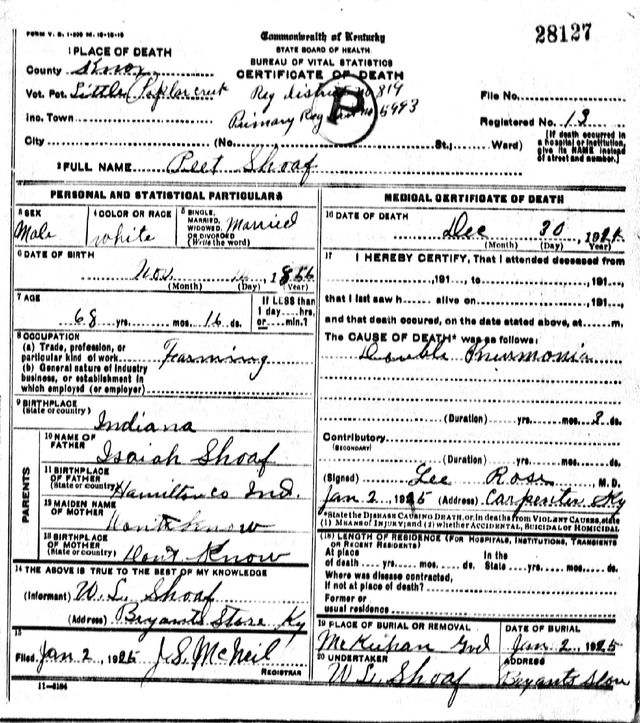 FORM V. S. 1-200 M. 10-18-16
Commonwealth of Kentucky
STATE BOARD OF HEALTH.
BUREAU OF VITAL STATISTICS
CERTIFICATE OF DEATH
28127
1 PLACE OF DEATH
County Knox
Vot. Pct. Little Poplar creek
Reg district no 819
File No.
Inc. Town
Primary Reg Dist no 5993
Registered No. 13
City (No. St.; Ward)
[If death occurred in a hospital or institution, give its NAME instead of street and number.]
P
2 FULL NAME Peet Shoaf
PERSONAL AND STATISTICAL PARTICULARS
3 SEX
Male
4 COLOR OR RACE
white
5 SINGLE, MARRIED, WIDOWED, OR DIVORCED (Write the word)
Married
6 DATE OF BIRTH
Nov 1856
(Month) (Day) (Year)
7 AGE
68 yrs. mos. 16 ds.
If LESS than 1 day....hrs, or....min.?
8 OCCUPATION
(a) Trade, profession, or particular kind of work Farming
(b) General nature of industry business, or establishment in which employed (or employer)
9 BIRTHPLACE
(State or country)
Indiana
PARENTS
10 NAME OF FATHER
Isaiah Shoaf
11 BIRTHPLACE OF FATHER (State or country)
Hamilton co Ind.
12 MAIDEN NAME OF MOTHER
Dont Know
13 BIRTHPLACE OF MOTHER (State or country)
Dont Know
14 THE ABOVE IS TRUE TO THE BEST OF MY KNOWLEDGE
(Informant) W. L. Shoaf
(Address) Bryants Store Ky
15
Filed Jan 2, 1925 J. S. McNeil
REGISTRAR
11-3184
MEDICAL CERTIFICATE OF DEATH
16 DATE OF DEATH
Dec 30, 1924
(Month) (Day) (Year)
17 I HEREBY CERTIFY, That I attended deceased from
,191 , to ,191 ,
that I last saw h alive on ,191 ,
and that death occured, on the date stated above, at m.
The CAUSE OF DEATH* was as follows:
Double Pneumonia
(Duration) yrs. mos. ds.
Contributory
(SECONDARY)
(Duration) yrs. mos. ds.
(Signed) Lee Rose M. D.
Jan 2, 1925 (Address) Carpenter Ky
*State the DISEASE CAUSING DEATH, or, in deaths from VIOLENT CAUSES, state
(1) MEANS OF INJURY; and (2) whether ACCIDENTAL, SUICIDAL or HOMICIDAL
(18) LENGTH OF RESIDENCE (FOR HOSPITALS, INSTITUTIONS, TRANSIENTS OR RECENT RESIDENTS)
At place of death yrs. mos. ds. In the State yrs. mos. ds.
Where was disease contracted,
If not at place of death?
Former or
usual residence
19 PLACE OF BURIAL OR REMOVAL
DATE OF BURIAL
Jan 2, 1925
20 UNDERTAKER
W L Shoaf
ADDRESS
Bryants Store